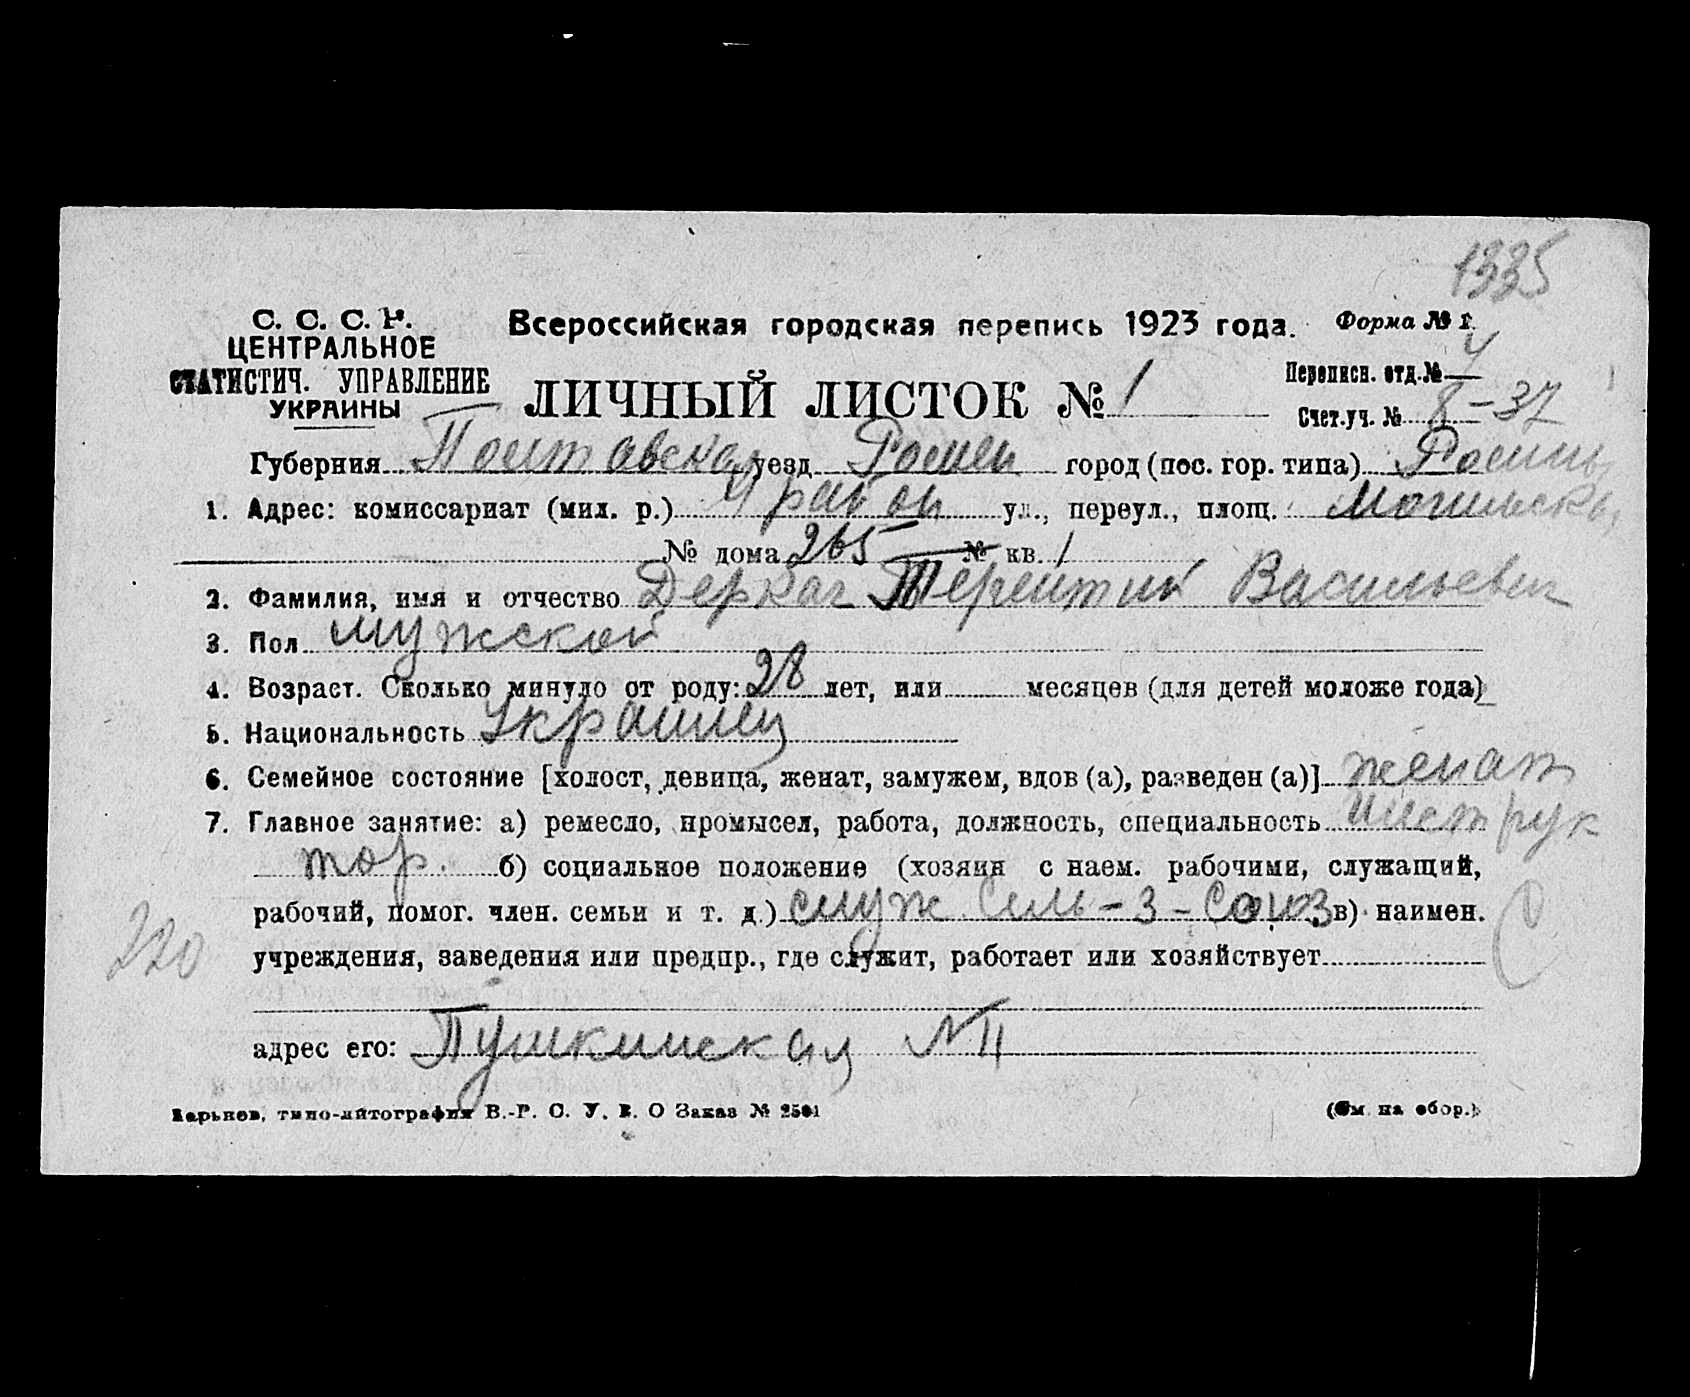 1335
С. С. С. Р.
ЦЕНТРАЛЬНОЕ
СТАТИСТИЧ. УПРАВЛЕНИЕ
УКРАИНЫ
Всероссийская городская перепись 1923 года.
Форма № 1.
ЛИЧНЫЙ ЛИСТОК № 1
Переписн. отд. № 4
Счет.уч. № 8-37
Губерния Полтавская уезд Ромен город (пос. гор. типа) Ромны
1. Адрес: комиссариат (мил. р.) 4 район ул., переул., площ.
№ дома 265 № кв. 1
2. Фамилия, имя и отчество Деркач Терентий Васильевич
3. Пол мужской
4. Возраст. Сколько минуло от роду: 28 лет, или месяцев (для детей моложе года)
5. Национальность Украинец
6. Семейное состояние [холост, девица, женат, замужем, вдов (а), разведен (а)] женат
7. Главное занятие: а) ремесло, промысел, работа, должность, специальность инструк
тор. б) социальное положение (хозяин с наем. рабочими, служащий,
рабочий, помог. член. семьи и т. д.) служ. Сель-З-Союз в) наимен.
220
учреждения, заведения или предпр., где служит, работает или хозяйствует
адрес его: Пушкинская № 11
Харьков, типо-литография В.-Р. С. У. В. О Заказ № 2501
(См. на обор.)